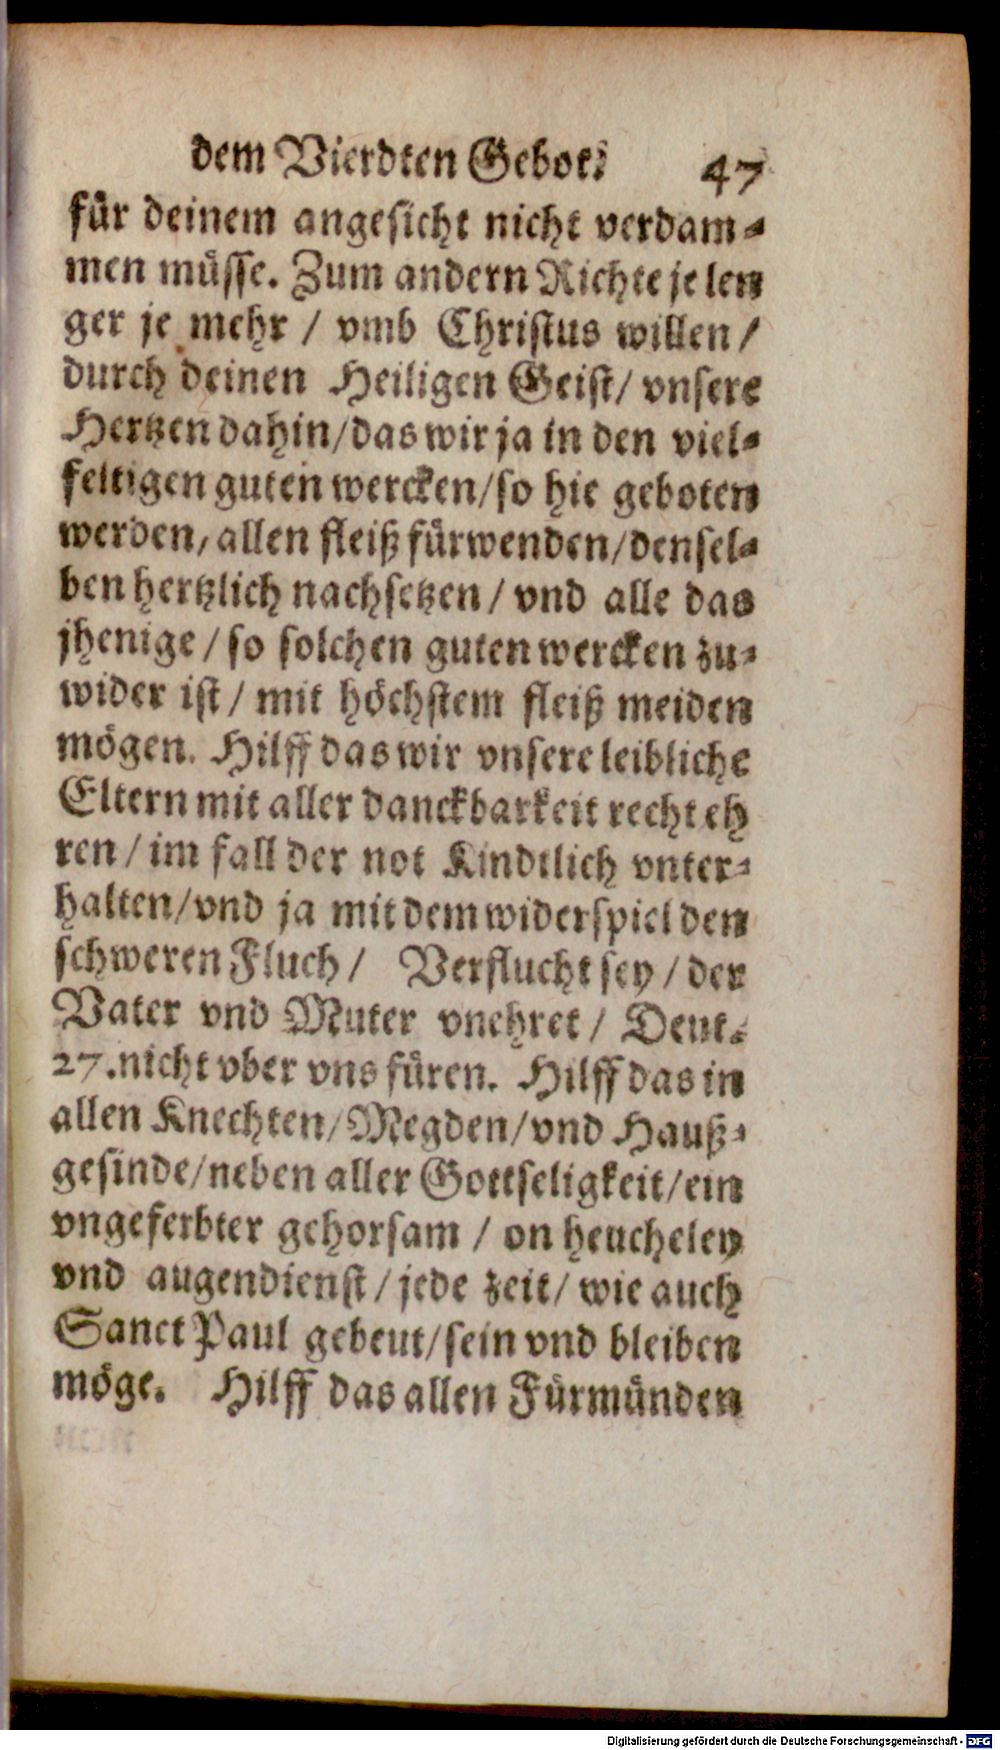 dem Vierdten Gebot. 47
für deinem angesicht nicht verdam-
men müsse. Zum andern Richte je len
ger je mehr / vmb Christus willen /
durch deinen Heiligen Geist / vnsere
Hertzen dahin / das wir ja in den viel-
feltigen guten wercken / so hie geboten
werden, allen fleiß fürwenden / densel-
ben hertzlich nachsetzen / vnd alle das
jhenige / so solchen guten wercken zu-
wider ist / mit höchstem fleiß meiden
mögen. Hilff das wir vnsere leibliche
Eltern mit aller danckbarkeit recht eh
ren / im fall der not Kindtlich vnter-
halten / vnd ja mit dem widerspiel den
schweren Fluch / Verflucht sey / der
Vater vnd Muter vnehret / Deut.
27. nicht vber vns füren. Hilff das in
allen Knechten / Megden / vnd Hauß-
gesinde / neben aller Gottseligkeit / ein
vngeferbter gehorsam / on heucheley
vnd augendienst / jede zeit / wie auch
Sanct Paul gebeut / sein vnd bleiben
möge. Hilff das allen Fürmünden
Digitalisierung gefördert durch die Deutsche Forschungsgemeinschaft - DFG